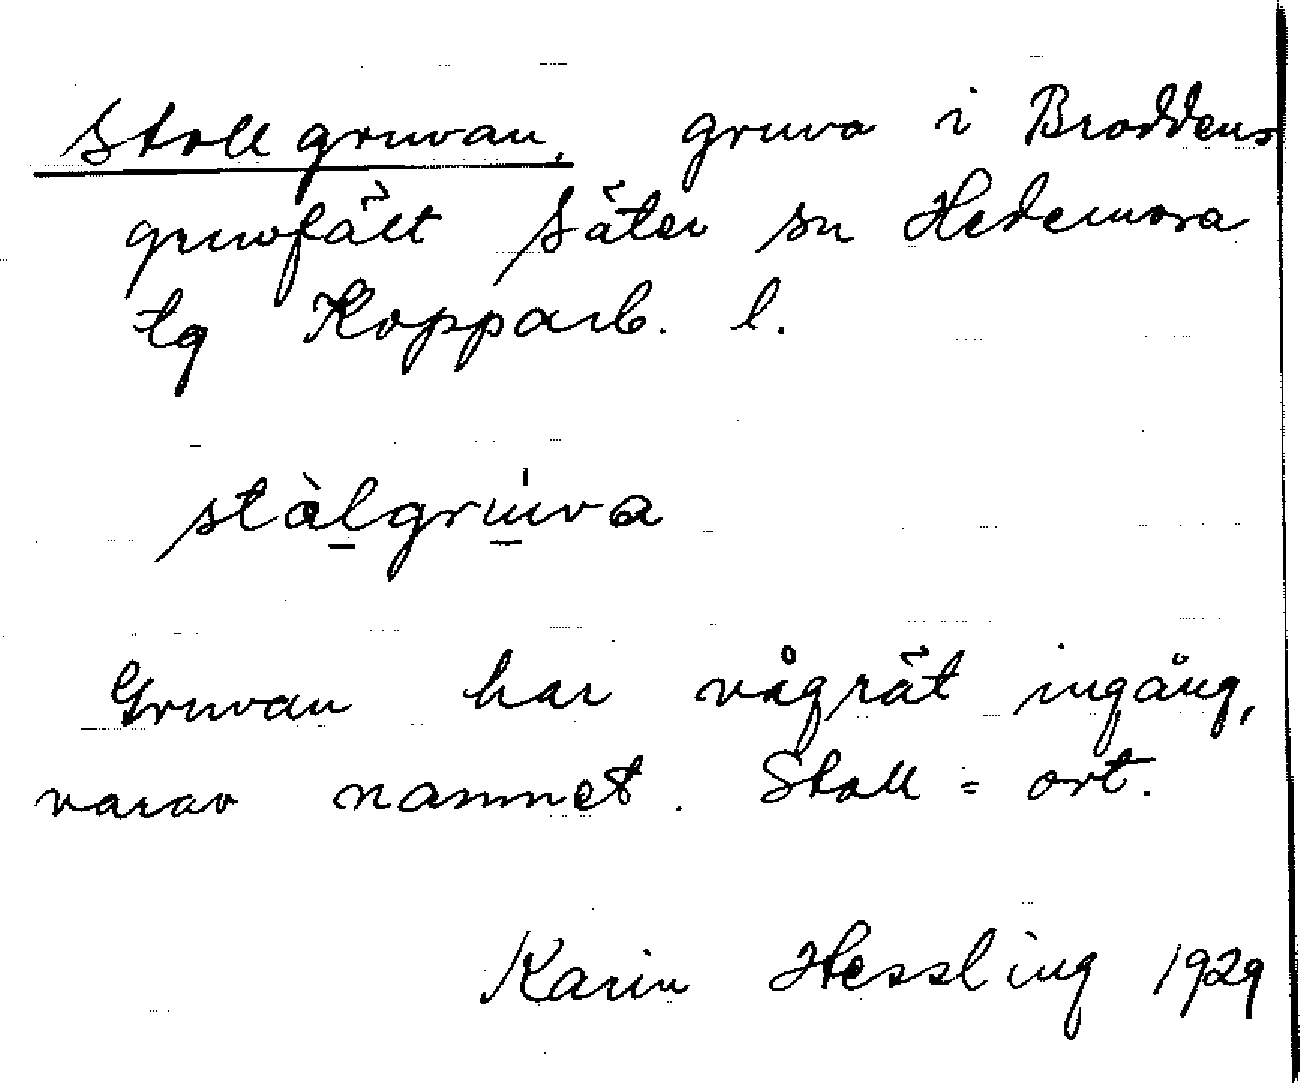 Stollgruvan, gruva i Broddens
gruvfält Säter sn Hedemora
tg Kopparb. l.
stàlgrúva
Gruvan har vågrät ingång,
varav namnet. Stoll = ort.
Karin Hessling 1929